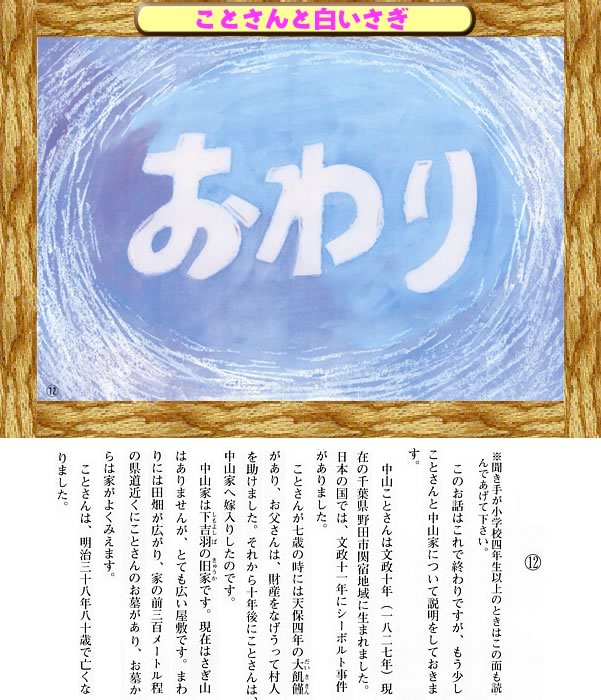 ことさんと白いさぎ
おわり
⑫
⑫
※聞き手が小学校四年生以上のときはこの面も読
んであげて下さい。
このお話はこれで終わりですが、もう少し
ことさんと中山家について説明をしておきま
す。
中山ことさんは文政十年（一八二七年）現
在の千葉県野田市関宿地域に生まれました。
日本の国では、文政十一年にシーボルト事件
がありました。
ことさんが七歳の時には天保四年の大飢饉
があり、お父さんは、財産をなげうって村人
を助けました。それから十年後にことさんは、
中山家へ嫁入りしたのです。
中山家は下吉羽の旧家です。現在はさぎ山
はありませんが、とても広い屋敷です。まわ
りには田畑が広がり、家の前三百メートル程
の県道近くにことさんのお墓があり、お墓か
らは家がよくみえます。
ことさんは、明治三十八年八十歳で亡くな
りました。